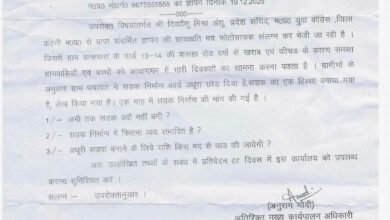 म0प्र0 मो0नं0 9675555885 का ज्ञापन दिनांक 19.12.2025
उपरोक्त विषयांतर्गत श्री दिव्यांशु मिश्रा अंशू, प्रदेश सचिव, म0प्र0 युवा काँग्रेस ,जिला
कटनी म0प्र0 से प्राप्त संदर्भित ज्ञापन की छायाप्रति मय फोटोग्राफ्स संलग्न कर भेजी जा रही है ।
जिसमे ग्राम कन्हवारा के वार्ड 13–14 की करूहर रोड वर्षो से खराब एवं कीचड के कारण समस्त
ग्रामवासियों एवं बच्चो को आवागमन में भारी दिक्कतों का सामना करना पडता है । ग्रामीणो के
अनुसार ग्राम पंचायत ने सडक निर्माण कार्य अधूरा छोड दिया है,सडक का एक हिस्सा बनाया गया
है, लेख किया गया है। एक माह में सडक निर्माण की मांग की गई है ।
1/– अभी तक सडक क्यों नही बनी ?
2/– सडक निर्माण में कितना व्यय संभावित है ?
3/– अधूरी सडक बनाने के लिये राशि किस मद से व्यय की जावेगी ?
अतः उल्लेखित तथ्यों के संबध में प्रतिवेदन 07 दिवस में इस कार्यालय को उपलब्ध
कराना सुनिश्चित करें ।
संलग्न :– उपरोक्तानुसार ।
(अनुराग मोदी)
अतिरिक्त मुख्य कार्यपालन अधिकारी